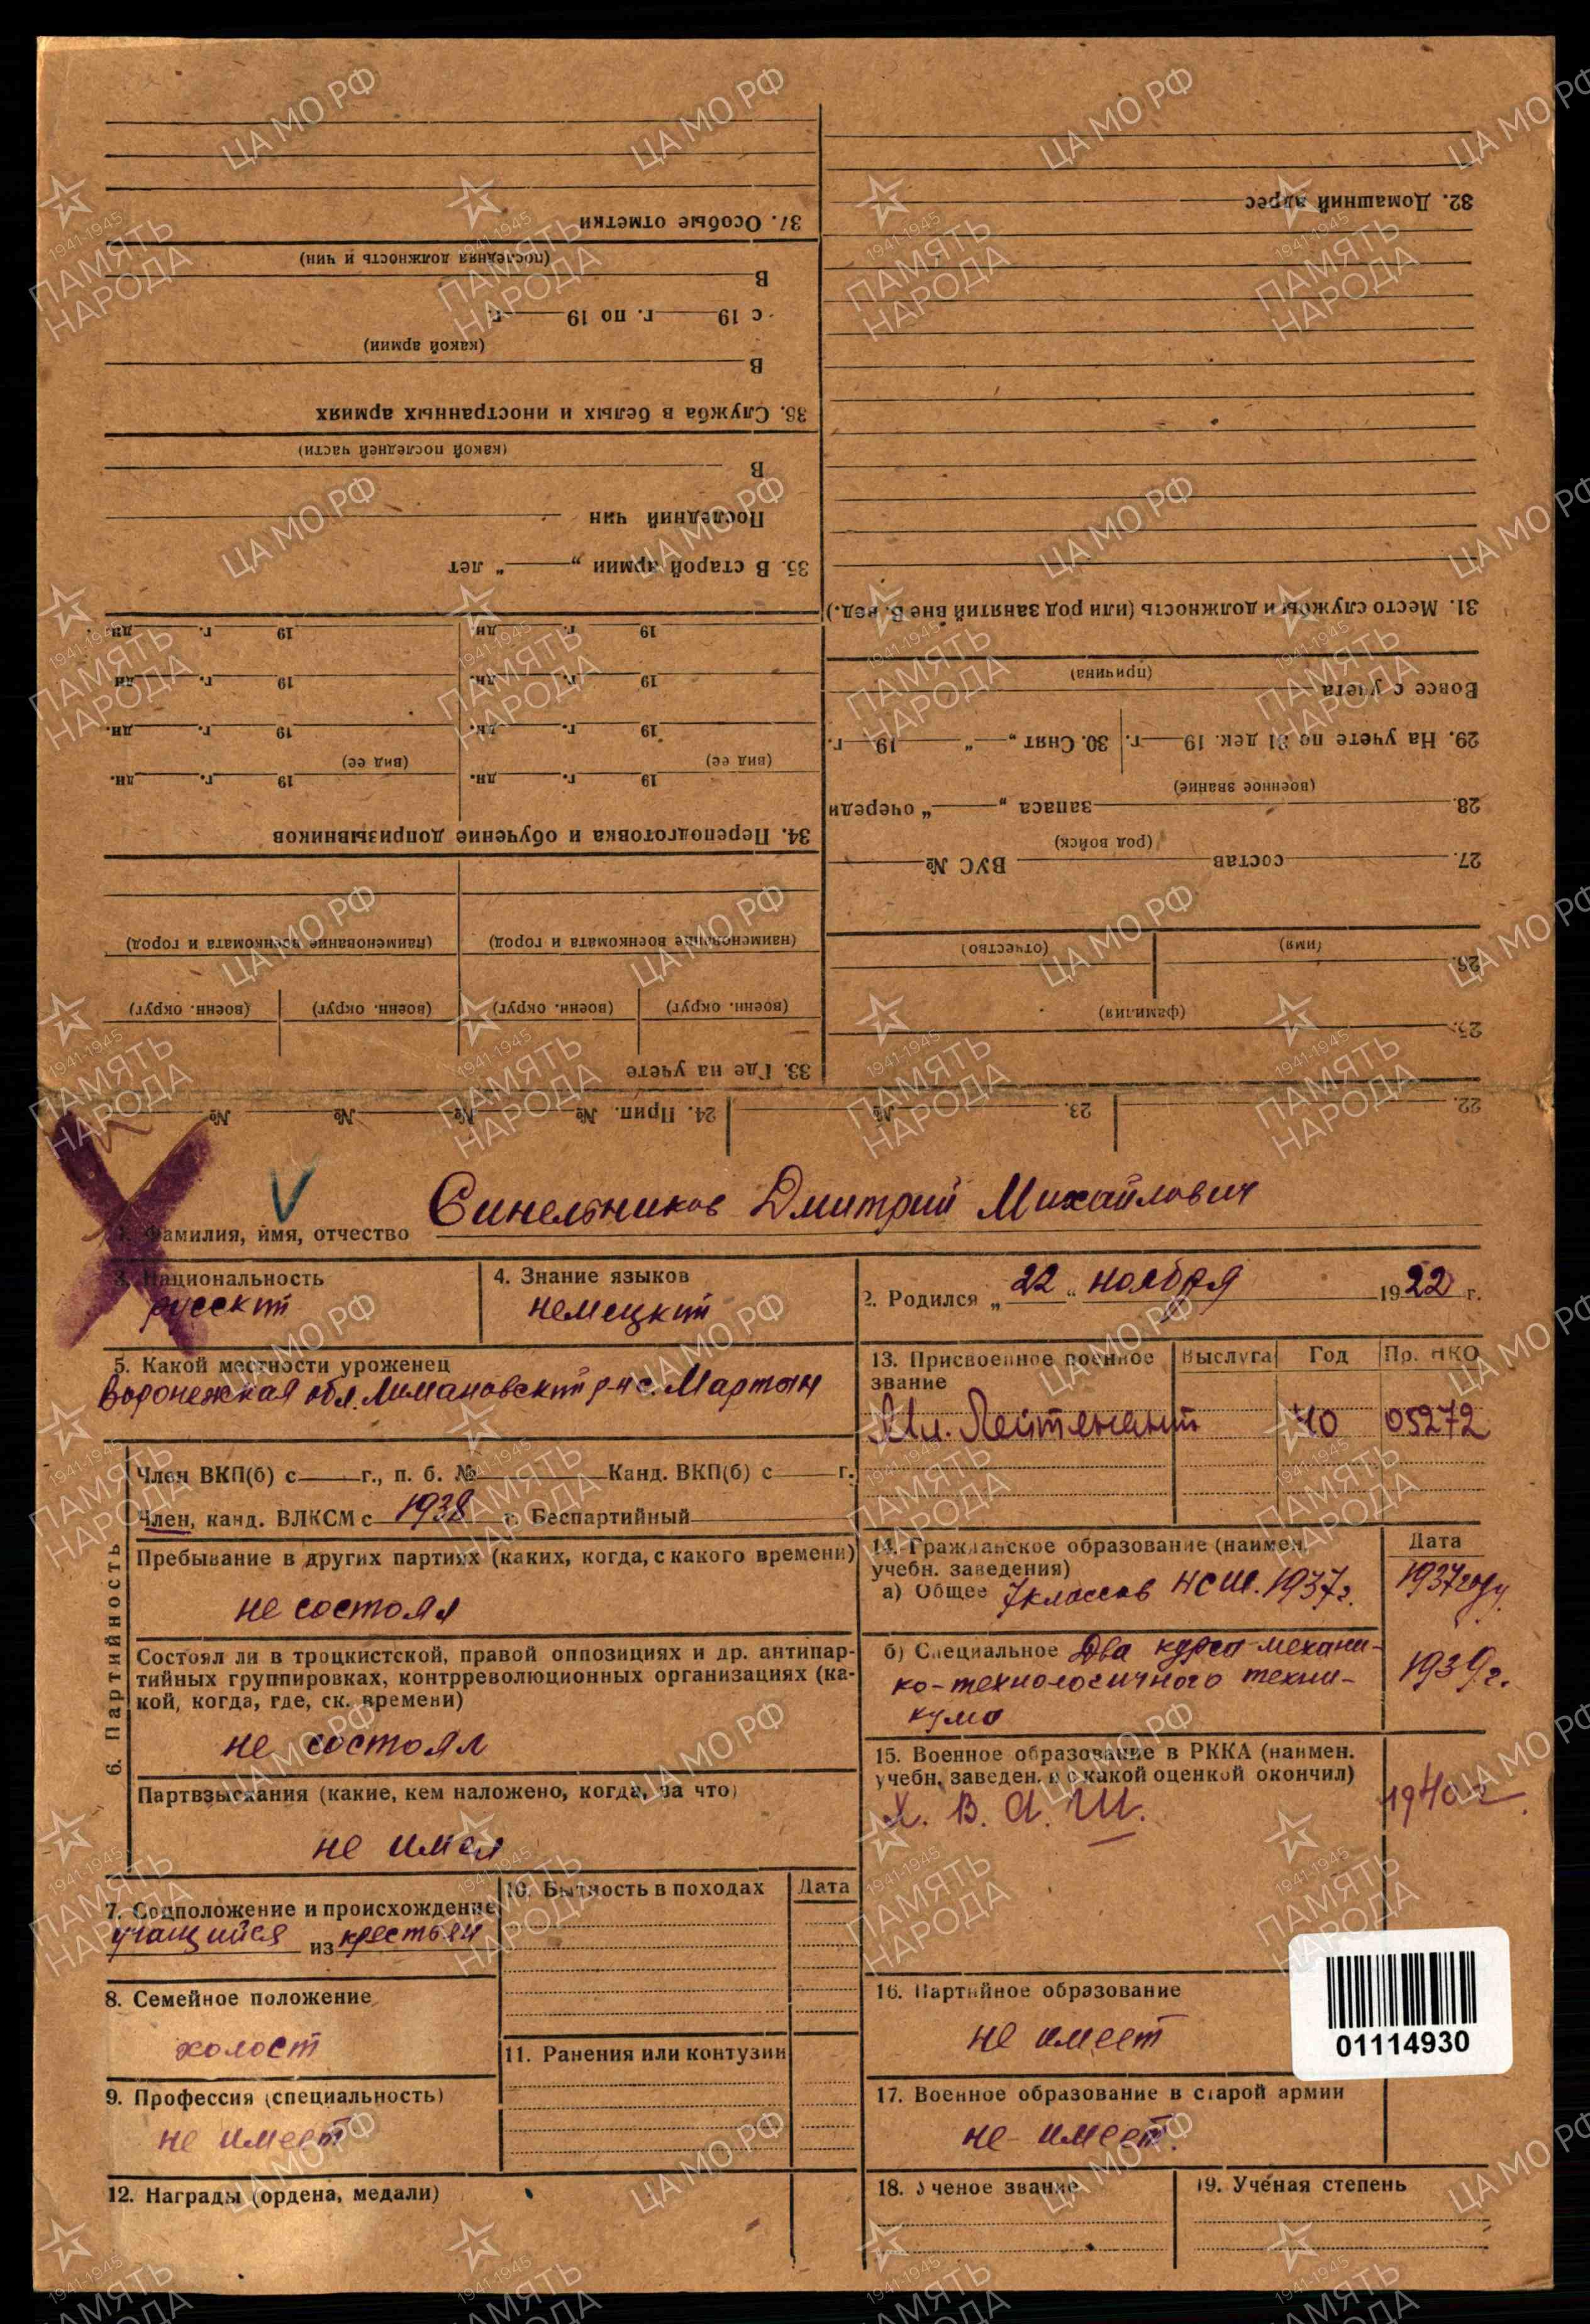 32. Домашний адрес
31. Место службы и должность (или род занятий вне В. вед.)
Вовсе с учета
(причина)
29. На учете по 31 дек. 19 г. 30. Снят „ “ 19 г.
(военное звание)
28. запаса „ “ очереди
(род войск)
27. состав ВУС №
(имя) (отчество)
26.
(фамилия)
25.
37. Особые отметки
(последняя должность и чин)
В
с 19 г. по 19 г.
(какой армии)
В
36. Служба в белых и иностранных армиях
(какой последней части)
В
Последний чин
35. В старой армии „ “ лет
19 г. дн. 19 г. дн.
19 г. дн. 19 г. дн.
19 г. дн. 19 г. дн.
(вид ее) (вид ее)
19 г. дн. 19 г. дн.
34. Переподготовка и обучение допризывников
(наименование военкомата и город) (наименование военкомата и город)
(военн. округ) (военн. округ) (военн. округ) (военн. округ)
33. Где на учете
22. 23. № 24. Прип. № № № №
1. Фамилия, имя, отчество Синельников Дмитрий Михайлович
3. Национальность
русский
4. Знание языков
немецкий
2. Родился „22“ ноября 1922 г.
5. Какой местности уроженец
Воронежская обл. Лимановский р-н с. Мартын
13. Присвоенное военное звание Выслуга Год Пр. НКО
Мл. Лейтенант 40 05272
6. Партийность
Член ВКП(б) с г., п. б. № Канд. ВКП(б) с г.
Член, канд. ВЛКСМ с 1938 г. Беспартийный
Пребывание в других партиях (каких, когда, с какого времени)
не состоял
Состоял ли в троцкистской, правой оппозициях и др. антипар-
тийных группировках, контрреволюционных организациях (ка-
кой, когда, где, ск. времени)
не состоял
Партвзыскания (какие, кем наложено, когда, за что)
не имел
14. Гражданское образование (наимен.
учебн. заведения) Дата
а) Общее 7 классов НСШ. 1937г. 1937 году
б) Специальное Два курса механи-
ко-технологичного техни- 1939г.
кума
15. Военное образование в РККА (наимен.
учебн. заведен. и с какой оценкой окончил)
Х. В. А. Ш. 1940 г.
7. Соцположение и происхождение
учащийся из крестьян
10. Бытность в походах Дата
8. Семейное положение
холост
11. Ранения или контузии
9. Профессия (специальность)
не имеет
12. Награды (ордена, медали)
16. Партийное образование
не имеет
01114930
17. Военное образование в старой армии
не имеет.
18. Ученое звание 19. Учёная степень
ЦА МО РФ
1941-1945
ПАМЯТЬ
НАРОДА